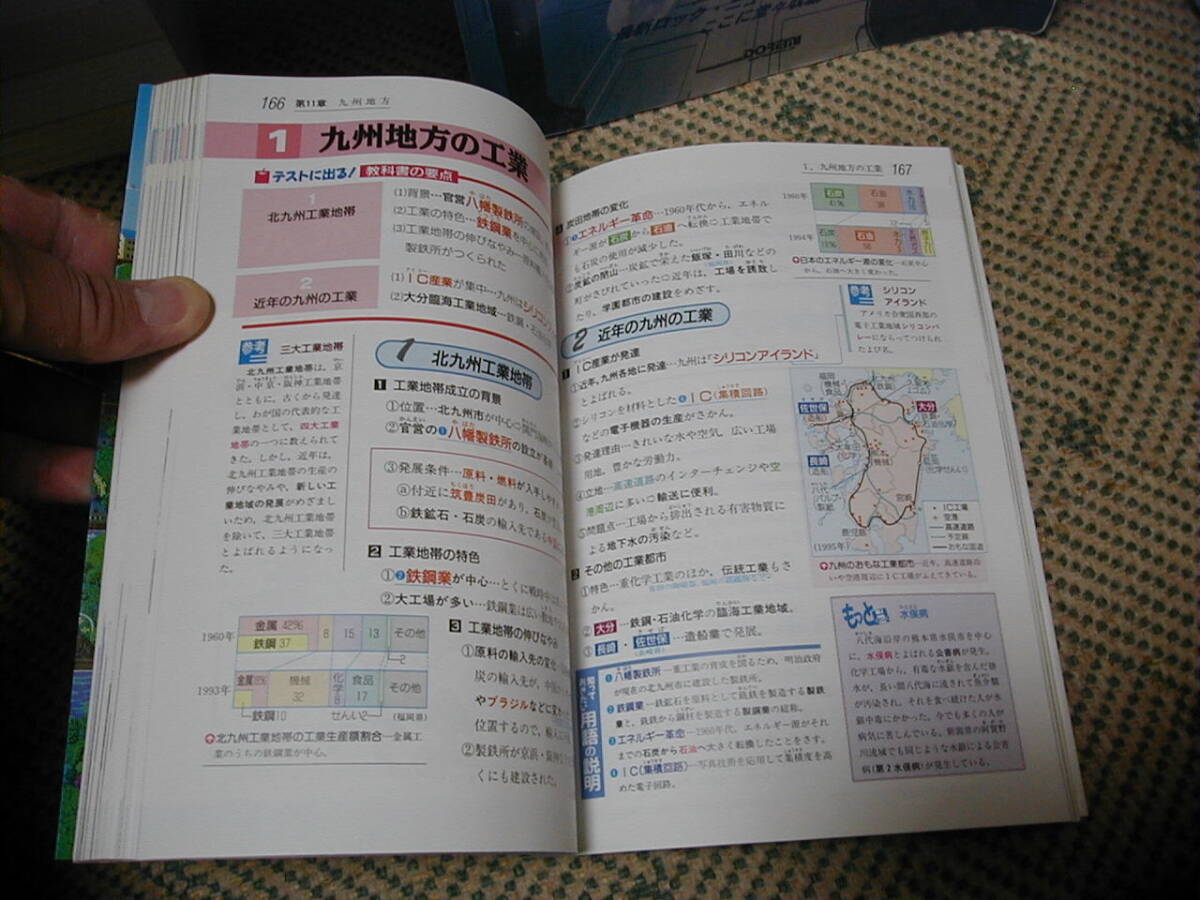 最新ロック・ニュ
ここに堂々収録
DOREMI
166 第11章 九州地方
1 九州地方の工業
テストに出る! 教科書の要点
1
北九州工業地帯
(1)背景…官営八幡製鉄所の
(2)工業の特色…鉄鋼業を中心に
(3)工業地帯の伸びなやみ…原料
製鉄所がつくられた
2
近年の九州の工業
(1)IC産業が集中…九州はシリコン
(2)大分臨海工業地域…鉄鋼・石油
参考 三大工業地帯
北九州工業地帯は、京
浜・中京・阪神工業地帯
とともに、古くから発達
し、わが国の代表的な工
業地帯として、四大工業
地帯の一つに数えられて
きた。しかし、近年は、
北九州工業地帯の生産の
伸びなやみや、新しい工
業地域の発展がめざまし
いため、北九州工業地帯
を除いて、三大工業地帯
とよばれるようになっ
た。
1 北九州工業地帯
1 工業地帯成立の背景
①位置…北九州市が中心
②官営の八幡製鉄所の設立が
③発展条件…原料・燃料が入手しやす
ⓐ付近に筑豊炭田があり、石炭が
ⓑ鉄鉱石・石炭の輸入先である
2 工業地帯の特色
①鉄鋼業が中心…とくに戦時中は
②大工場が多い…鉄鋼業は広い敷地
3 工業地帯の伸びなやみ
①原料の輸入先の変化
炭の輸入先が、中国か
やブラジルなどに変わ
位置するので、輸入に
②製鉄所が京浜・阪神
くにも建設された。
1960年 金属 42% 8 15 13 その他
鉄鋼 37 2
1993年 金属 機械 32 化学 8 食品 17 その他
鉄鋼10 せんい2 (福岡県)
北九州工業地帯の工業生産額割合—金属工
業のうちの鉄鋼業が中心。
1. 九州地方の工業 167
炭田地帯の変化
①エネルギー革命…1960年代から、エネル
ギー源が石炭から石油へ転換⇨工業地帯で
も石炭の使用が減少した。
②炭鉱の閉山…炭鉱で栄えた飯塚・田川などの
町がさびれていった⇨近年は、工場を誘致し
たり、学園都市の建設をめざす。
2 近年の九州の工業
1 IC産業が発達
①近年、九州各地に発達…九州は「シリコンアイランド」
とよばれる。
②シリコンを材料としたIC(集積回路)
などの電子機器の生産がさかん。
③発達理由…きれいな水や空気、広い工場
用地、豊かな労働力。
④立地…高速道路のインターチェンジや空
港周辺に多い⇨輸送に便利。
⑤問題点…工場から排出される有害物質に
よる地下水の汚染など。
2 その他の工業都市
①特色…重化学工業のほか、伝統工業もさ
かん。
②大分…鉄鋼・石油化学の臨海工業地域。
③長崎・佐世保…造船業で発展。
(長崎県)
用語の説明
1 八幡製鉄所—重工業の育成を図るため、明治政府
が現在の北九州市に建設した製鉄所。
2 鉄鋼業—鉄鉱石を原料として銑鉄を製造する製鉄
業と、銑鉄から鋼材を製造する製鋼業の総称。
3 エネルギー革命—1960年代、エネルギー源がそれ
までの石炭から石油へ大きく転換したことをさす。
4 IC(集積回路)—写真技術を応用して集積度を高
めた電子回路。
1960年 石炭 石油
1994年 石炭 石油
日本のエネルギー源の変化—石炭中心
から、石油へ大きく変わった。
参考 シリコン
アイランド
アメリカ合衆国西部の
電子工業地域シリコンバ
レーにならってつけられ
たよび名。
福岡
機械
食品
佐世保
(造船)
大分
大牟田
(化学)
長崎
(造船)
熊本
(機械)
延岡
(化学せんい)
八代
宮崎
鹿児島
(1995年)
IC工場
空港
高速道路
予定線
おもな国道
九州のおもな工業都市—近年、高速道路沿
いや空港周辺にIC工場がふえてきている。
もっと 水俣病
八代海沿岸の熊本県水俣市を中心
に、水俣病とよばれる公害病が発生。
化学工場から、有毒な水銀を含んだ排
水が、長い間八代海に流されて魚介類
が汚染され、それを食べ続けた人が水
銀中毒にかかった。今でも多くの人が
病気に苦しんでいる。新潟県の阿賀野
川流域でも同じような水銀による公害
病(第2水俣病)が発生している。